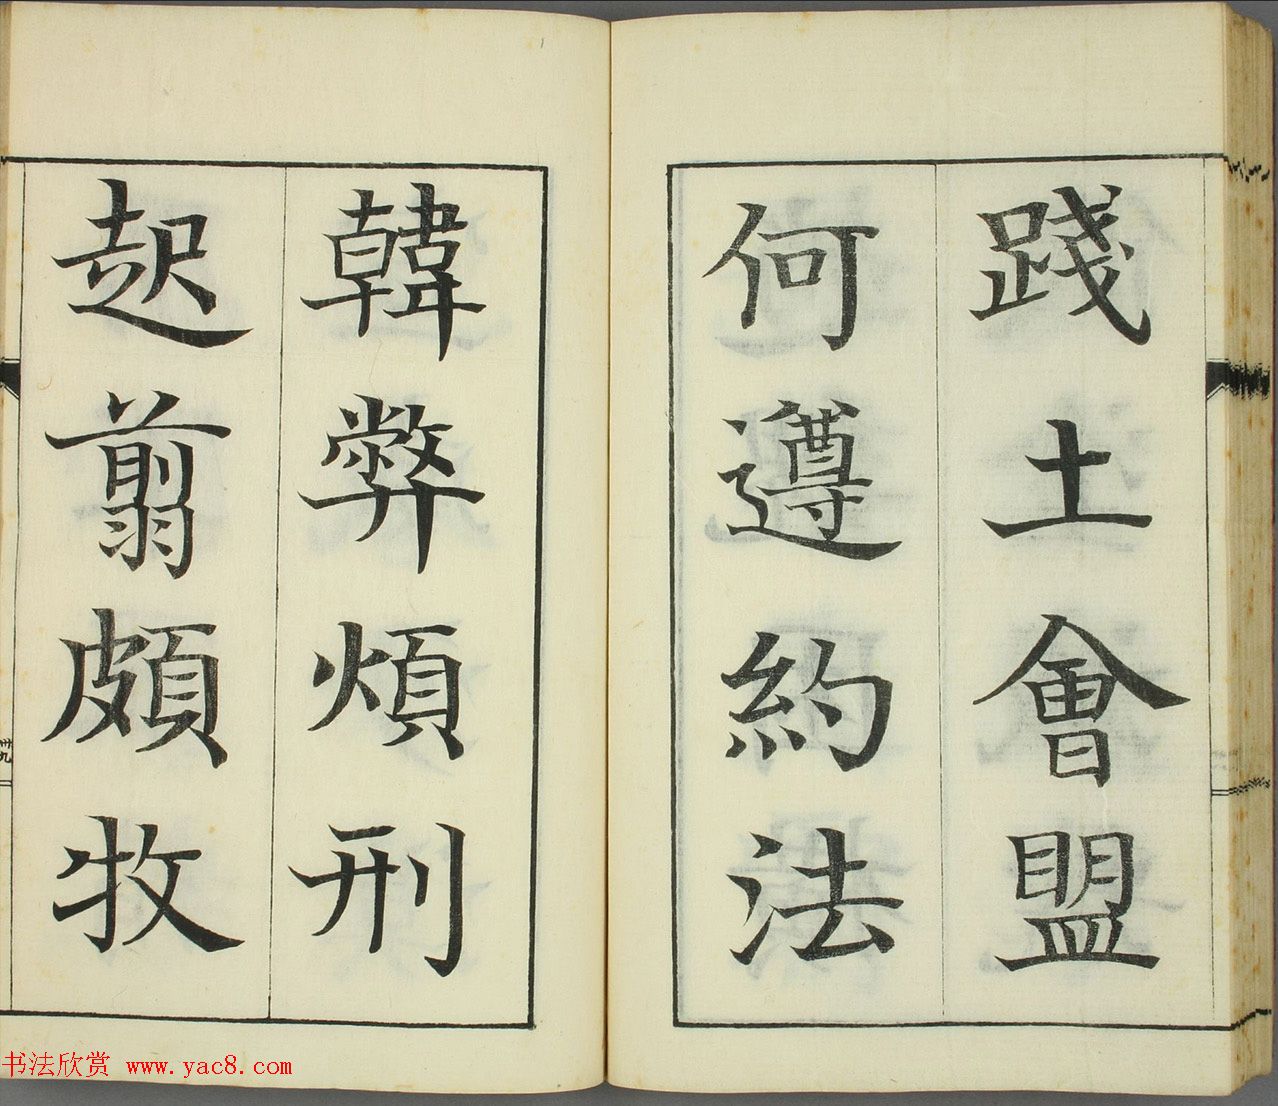 踐土會盟
何遵約法
韓弊煩刑
起翦頗牧
卅九
书法欣赏 www.yac8.com